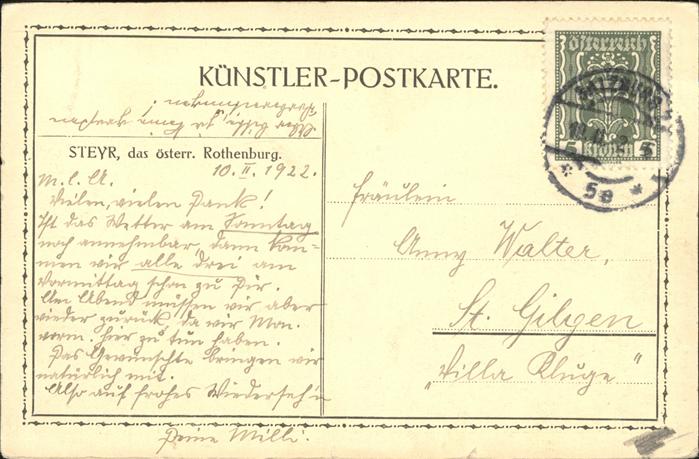 KÜNSTLER-POSTKARTE.
STEYR, das österr. Rothenburg.
10. II. 1922.
M. l. A.
Vielen, vielen Dank!
Ist das Wetter am Sonntag
noch annehmbar, dann kom-
men wir alle drei am
Vormittag schon zu Dir.
Am Abend müssen wir aber
wieder zurück, da wir Mon.
vorm. hier zu tun haben.
Das Gewünschte bringen wir
natürlich mit.
Also auf frohes Wiederseh'n
Deine Milli.
Fräulein
Anny Walter,
St. Gilgen
„Villa Kluge“
Österreich
5 Kronen 5
SALZBURG
5e